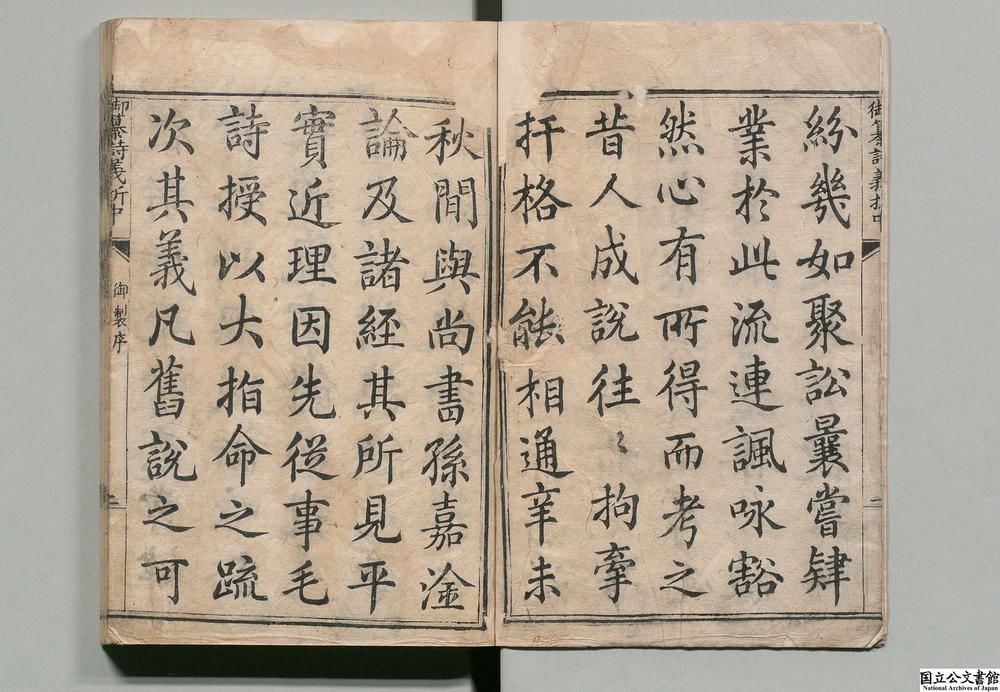 紛幾如聚訟曩嘗肄
業於此流連諷咏豁
然心有所得而考之
昔人成說往〻拘牽
扞格不能相通辛未
秋間與尚書孫嘉淦
論及諸經其所見平
實近理因先從事毛
詩授以大指命之疏
次其義凡舊說之可
御纂詩義折中
二
御纂詩義折中
御製序
二
国立公文書館
National Archives of Japan